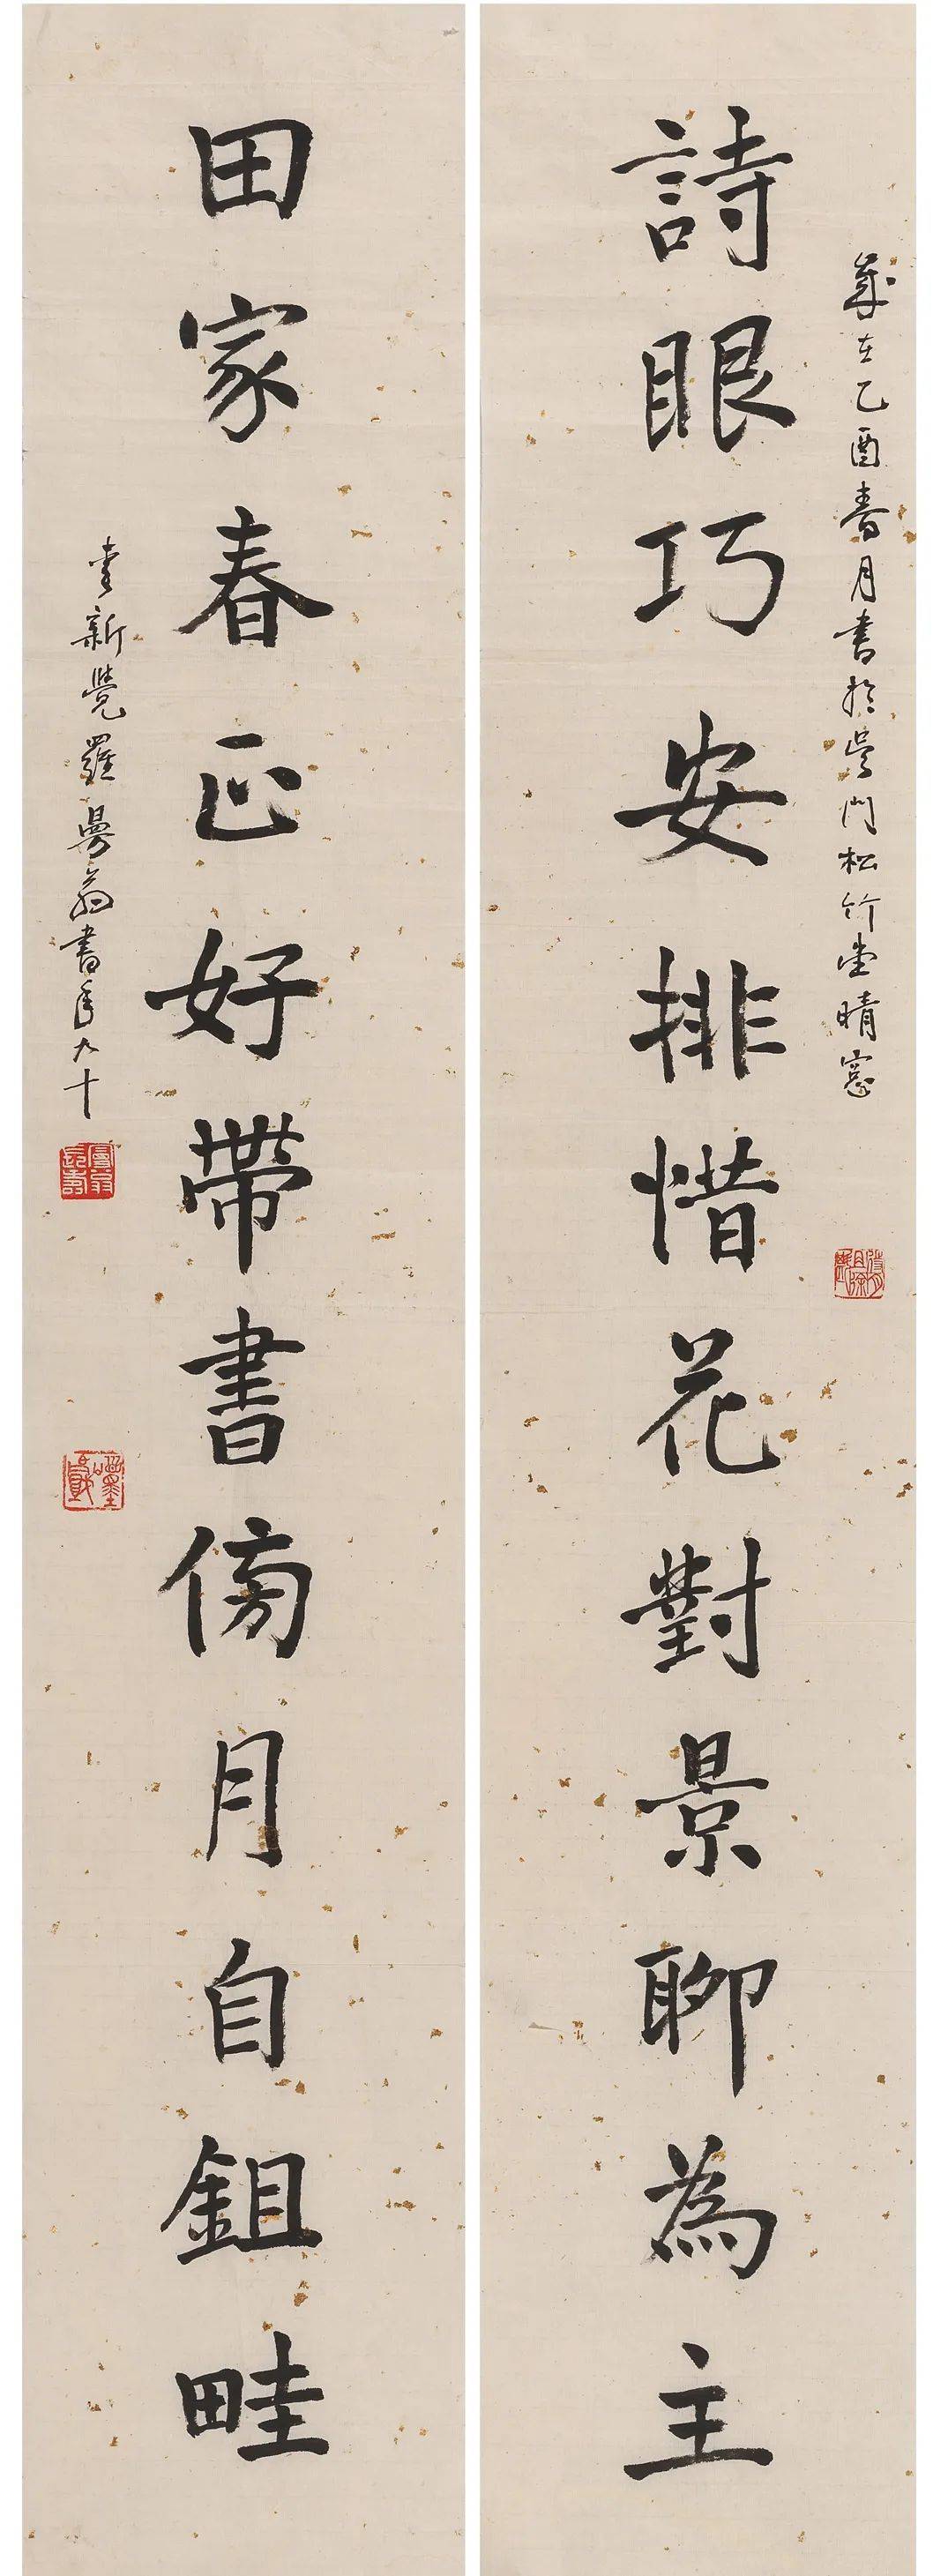 歲在乙酉春月書於吳門松竹堂晴窗
詩眼巧安排惜花對景聊為主
田家春正好帶書傍月自鉏畦
愛新覺羅曼翁書年九十
曼翁長壽